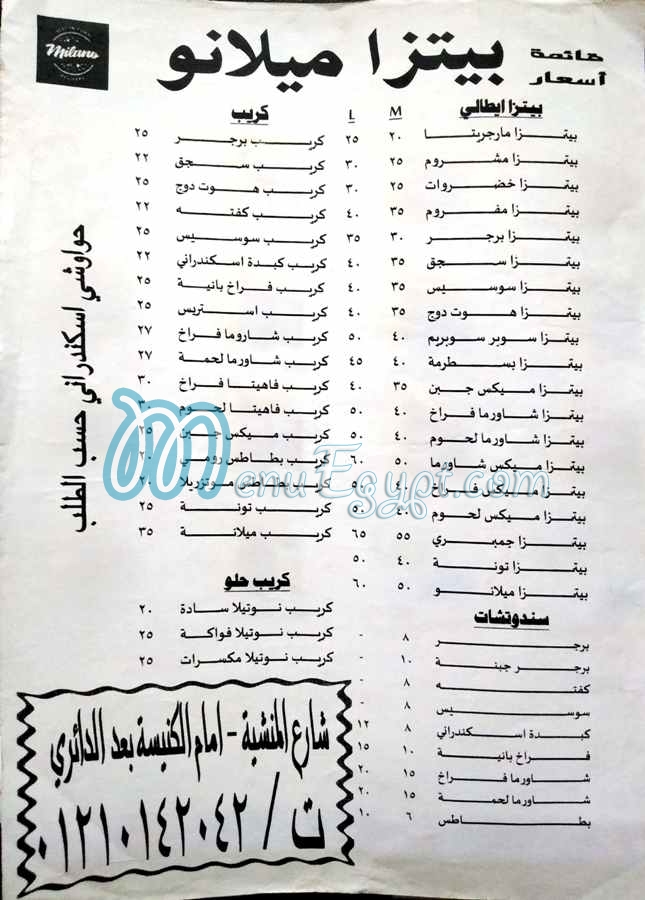 قائمة أسعار
بيتزا ميلانو
Milano
بيتزا ايطالي M L
بيتزا مارجريتا ٢٠ ٢٥
بيتزا مشروم ٢٥ ٣٠
بيتزا خضروات ٢٥ ٣٠
بيتزا مفروم ٣٥ ٤٠
بيتزا برجر ٣٠ ٣٥
بيتزا سجق ٣٥ ٤٠
بيتزا سوسيس ٣٥ ٤٠
بيتزا هوت دوج ٣٥ ٤٠
بيتزا سوبر سوبريم ٤٠ ٥٠
بيتزا بسطرمة ٤٠ ٤٥
بيتزا ميكس جبن ٣٥ ٤٠
بيتزا شاورما فراخ ٤٠ ٥٠
بيتزا شاورما لحوم ٤٠ ٥٠
بيتزا ميكس شاورما ٥٠ ٦٠
بيتزا ميكس فراخ ٤٠ ٥٠
بيتزا ميكس لحوم ٤٠ ٥٠
بيتزا جمبري ٥٥ ٦٥
بيتزا تونة ٤٠ ٥٠
بيتزا ميلانو ٥٠ ٦٠
سندوتشات
برجر ٨ -
برجر جبنة ١٠ -
كفته ٨ -
سوسيس ٨ -
كبدة اسكندراني ٨ ١٢
فراخ بانية ١٠ ١٥
شاورما فراخ ١٥ ٢٠
شاورما لحمة ١٥ ٢٠
بطاطس ٦ ١٠
كريب
كريب برجر ٢٥
كريب سجق ٢٢
كريب هوت دوج ٢٥
كريب كفته ٢٢
كريب سوسيس ٢٥
كريب كبدة اسكندراني ٢٢
كريب فراخ بانية ٢٥
كريب استربس ٢٥
كريب شاروما فراخ ٢٧
كريب شاورما لحمة ٢٧
كريب فاهيتا فراخ ٣٠
كريب فاهيتا لحوم
كريب ميكس جبن ٢٥
كريب بطاطس رومي
كريب بطاطس موتزريلا ٢٠
كريب تونة ٢٥
كريب ميلانة ٣٥
كريب حلو
كريب نوتيلا سادة ٢٠
كريب نوتيلا فواكة ٢٥
كريب نوتيلا مكسرات ٢٥
حواوشي اسكندراني حسب الطلب
شارع المنشية - امام الكنيسة بعد الدائري
ت / ٠١٢١٠١٤٢٠٤٢
MenuEgypt.com